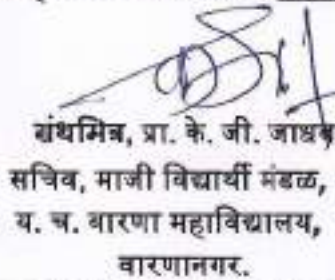 ग्रंथमित्र, प्रा. के. जी. जाधव
सचिव, माजी विद्यार्थी मंडळ,
य. च. वारणा महाविद्यालय,
वारणानगर.